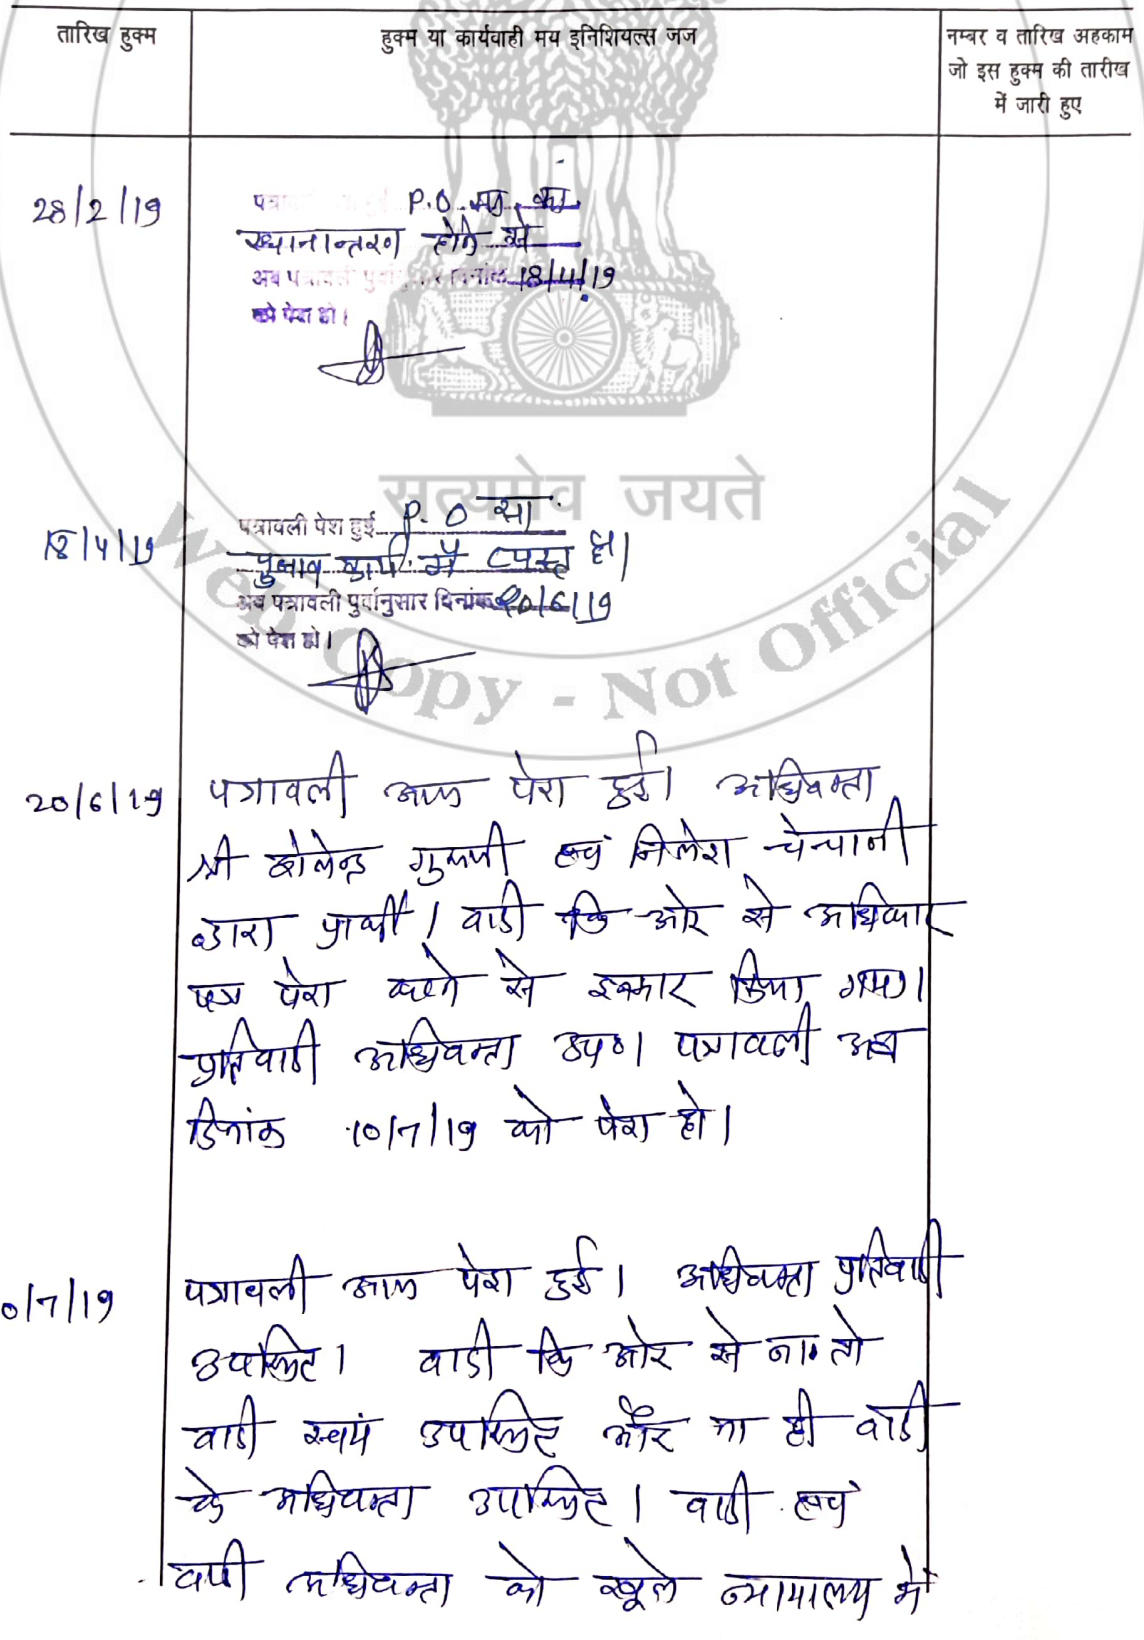 तारिख हुक्म
हुक्म या कार्यवाही मय इनिशियल्स जज
नम्बर व तारिख अहकाम
जो इस हुक्म की तारीख
में जारी हुए
28/2/19
P.O. सा. का
स्थानान्तरण होने से
अब पत्रावली पुर्वानुसार दिनांक 18/4/19
को पेश हो।
सत्यमेव जयते
Web Copy - Not Official
18/4/19
पत्रावली पेश हुई P.O सा.
चुनाव कार्य में व्यस्त है।
अब पत्रावली पुर्वानुसार दिनांक 20/6/19
को पेश हो।
20/6/19
पत्रावली आज पेश हुई। अधिवक्ता
श्री गुर्जर एवं निलेश चेचानी
द्वारा प्रार्थी / वादी कि ओर से अधिकार
पत्र पेश करने से इन्कार किया गया।
प्रतिवादी अधिवक्ता उप०। पत्रावली अब
दिनांक 10/7/19 को पेश हो।
0/7/19
पत्रावली आज पेश हुई। अधिवक्ता प्रतिवादी
उपस्थित। वादी कि ओर से ना तो
वादी स्वयं उपस्थित और ना ही वादी
के अधिवक्ता उपस्थित। वादी एवं
वादी अधिवक्ता को खूले न्यायालय में